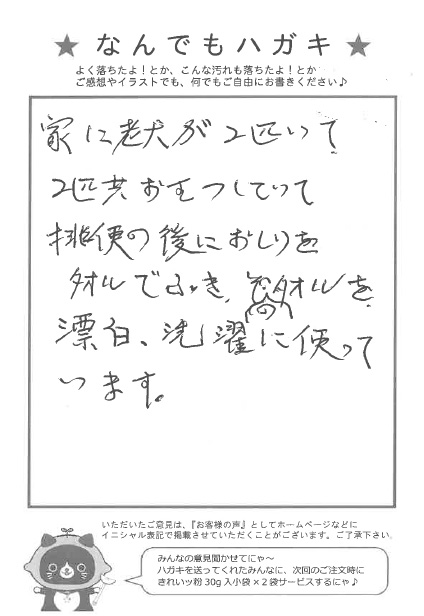 ★ なんでもハガキ ★
よく落ちたよ！とか、こんな汚れも落ちたよ！とか
ご感想やイラストでも、何でもご自由にお書きください♪
家に老犬が2匹いて
2匹共おむつしていて
排便の後におしりを
タオルでふき、そのタオルを
漂白、洗濯に使って
います。
いただいたご意見は、『お客様の声』としてホームページなどに
イニシャル表記で掲載させていただくことがございます。ご了承下さい。
みんなの意見聞かせてにゃ～
ハガキを送ってくれたみんなに、次回のご注文時に
きれいッ粉30g入小袋×2袋サービスするにゃ♪